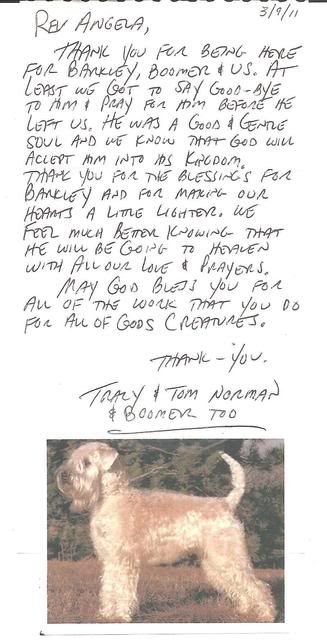 3/9/11
REV ANGELA,
THANK YOU FOR BEING HERE
FOR BARKLEY, BOOMER & US. AT
LEAST WE GOT TO SAY GOOD-BYE
TO HIM & PRAY FOR HIM BEFORE HE
LEFT US. HE WAS A GOOD & GENTLE
SOUL AND WE KNOW THAT GOD WILL
ACCEPT HIM INTO HIS KINGDOM.
THANK YOU FOR THE BLESSINGS FOR
BARKLEY AND FOR MAKING OUR
HEARTS A LITTLE LIGHTER. WE
FEEL MUCH BETTER KNOWING THAT
HE WILL BE GOING TO HEAVEN
WITH ALL OUR LOVE & PRAYERS.
MAY GOD BLESS YOU FOR
ALL OF THE WORK THAT YOU DO
FOR ALL OF GODS CREATURES.
THANK-YOU.
TRACY & TOM NORMAN
& BOOMER TOO